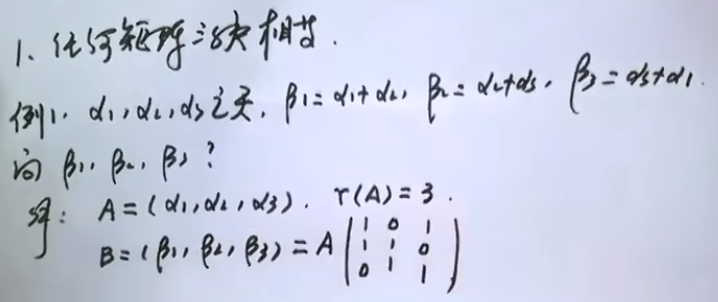 1、任何矩阵三秩相等.
例1. α1,α2,α3无关, β1=α1+α2, β2=α2+α3, β3=α3+α1.
问 β1, β2, β3?
解: A=(α1,α2,α3). r(A)=3.
B=(β1,β2,β3)=A(1 0 1
1 1 0
0 1 1)